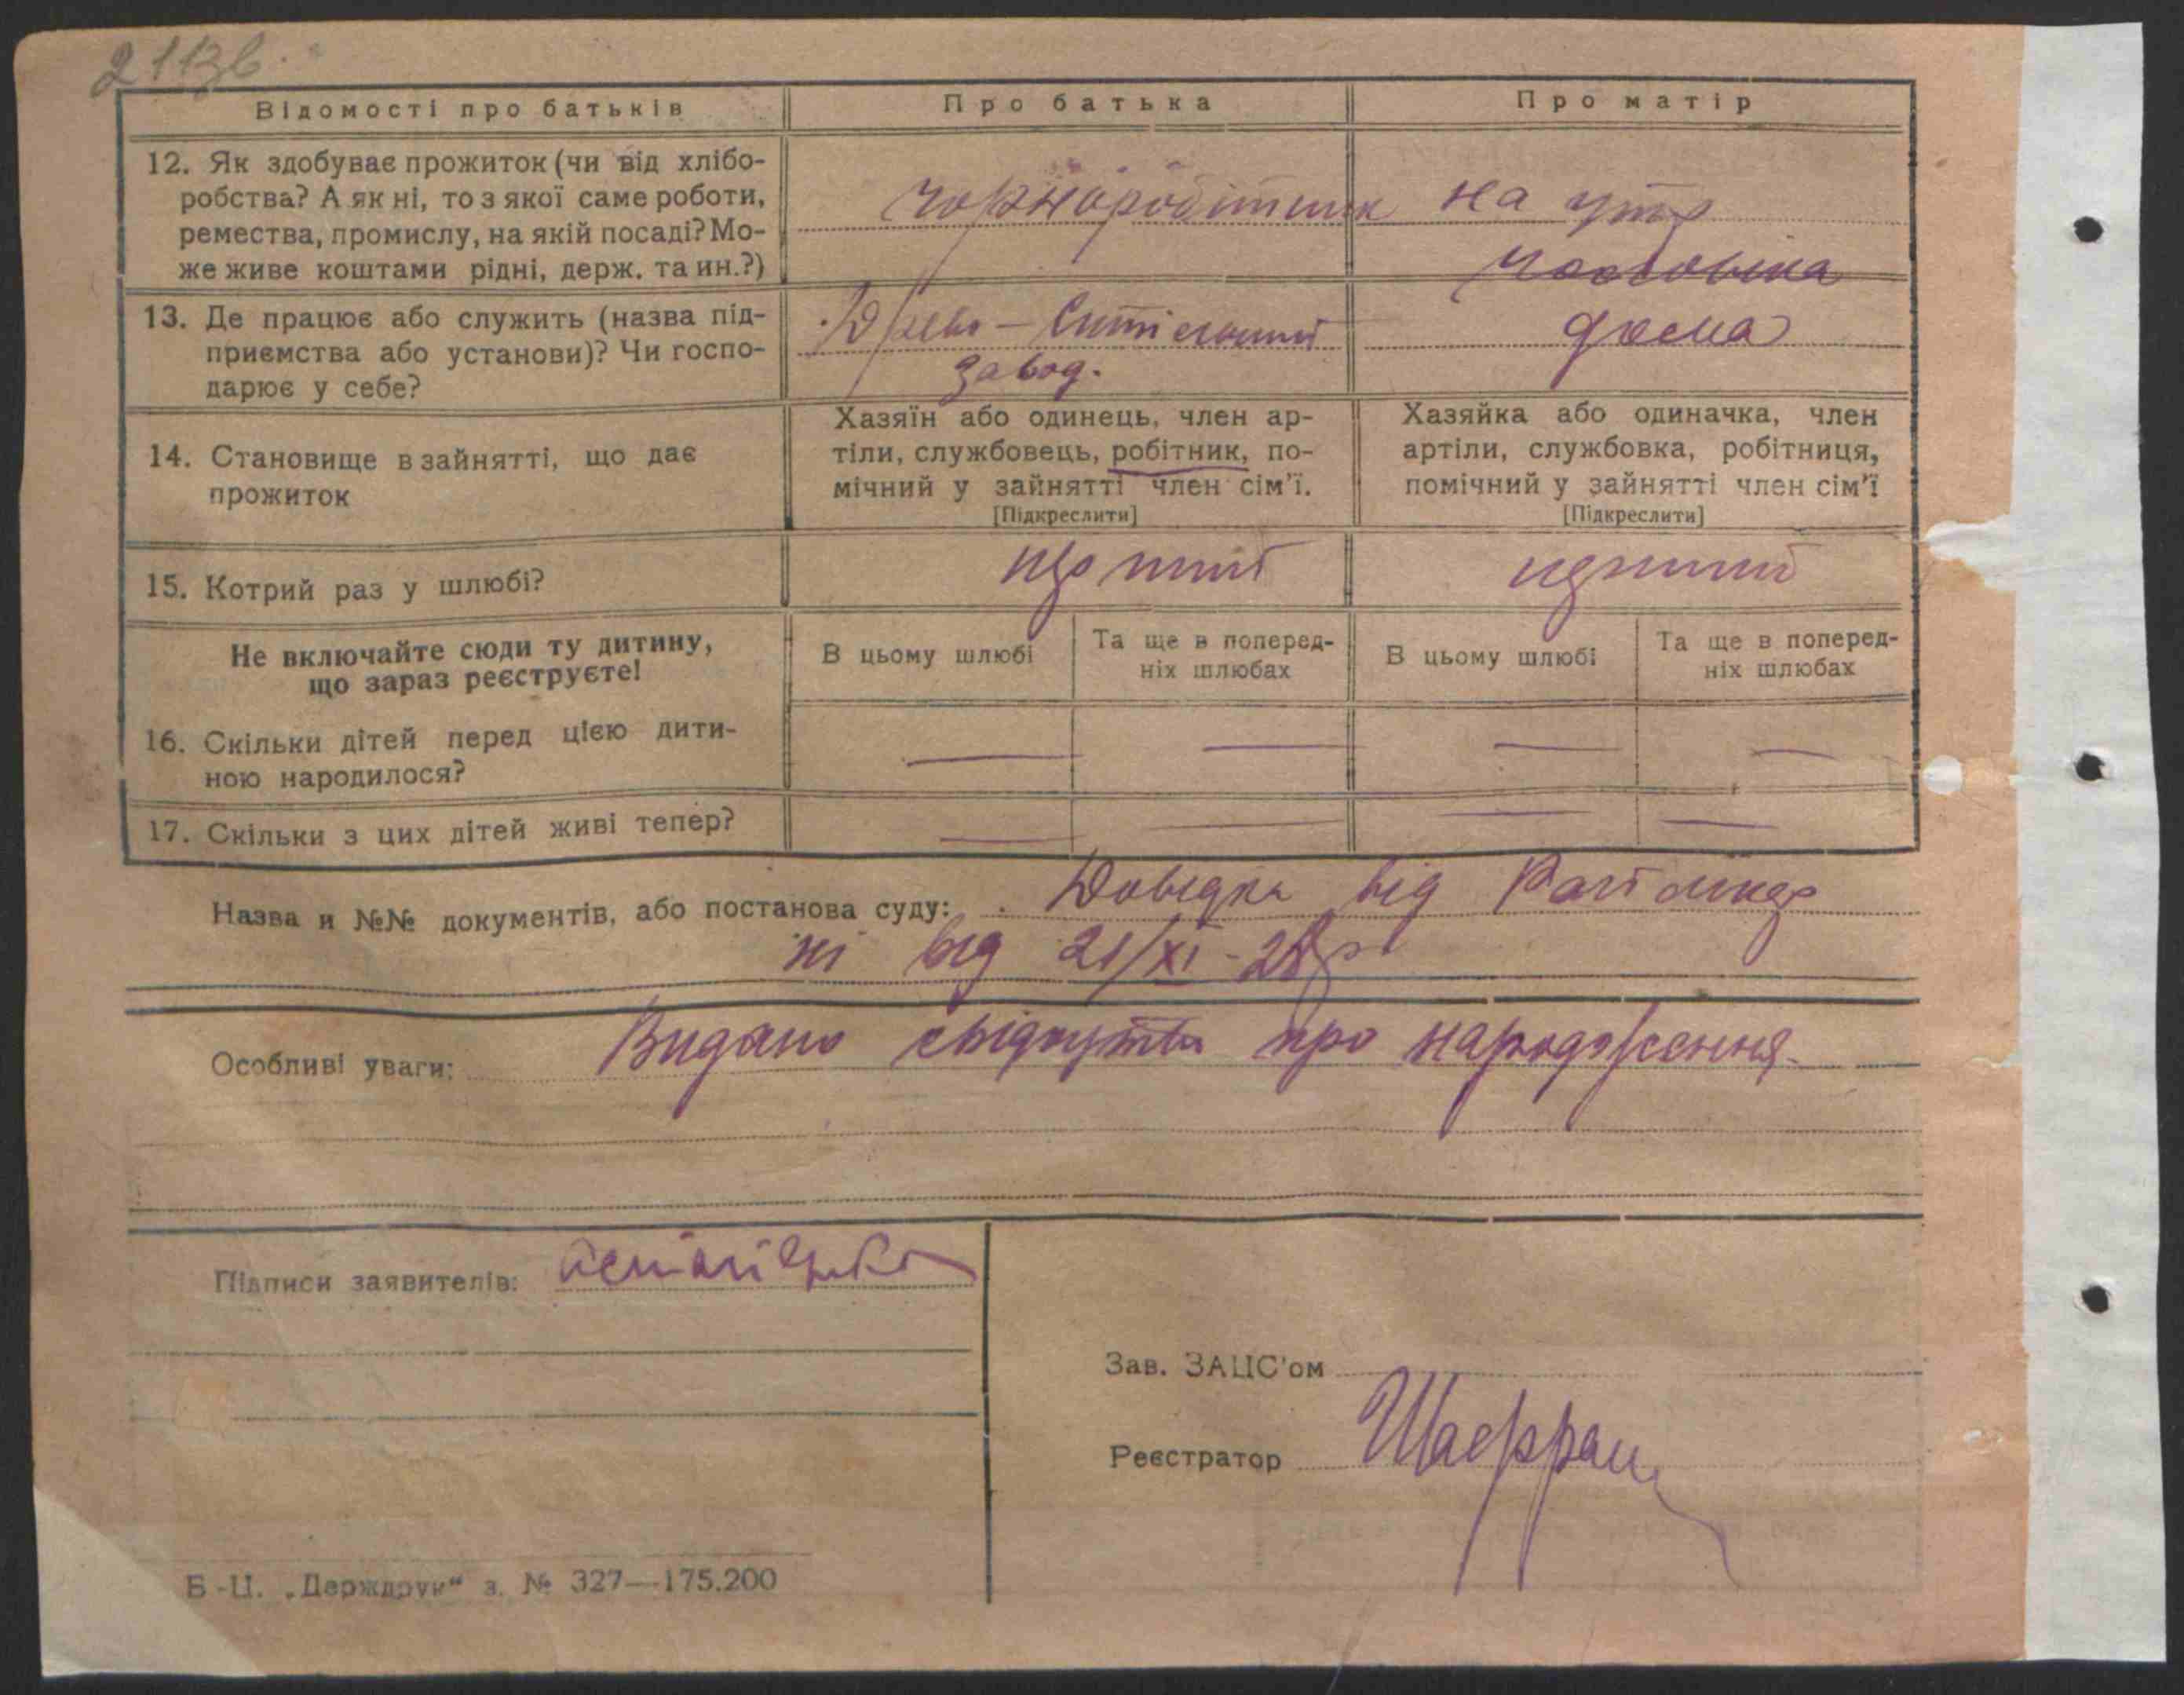 211зв.
Відомості про батьків
Про батька
Про матір
12. Як здобуває прожиток (чи від хлібо-
робства? А як ні, то з якої саме роботи,
ремества, промислу, на якій посаді? Мо-
же живе коштами рідні, держ. та ин.?)
чорноробітник
на утр
чоловіка
13. Де працює або служить (назва під-
приємства або установи)? Чи госпо-
дарює у себе?
завод.
дома
14. Становище в зайнятті, що дає
прожиток
Хазяїн або одинець, член ар-
тіли, службовець, робітник, по-
мічний у зайнятті член сім'ї.
[Підкреслити]
Хазяйка або одиначка, член
артіли, службовка, робітниця,
помічний у зайнятті член сім'ї
[Підкреслити]
15. Котрий раз у шлюбі?
Не включайте сюди ту дитину,
що зараз реєструєте!
В цьому шлюбі
Та ще в поперед-
ніх шлюбах
В цьому шлюбі
Та ще в поперед-
ніх шлюбах
16. Скільки дітей перед цією дити-
ною народилося?
17. Скільки з цих дітей живі тепер?
Назва и №№ документів, або постанова суду: Довідка від
від 21/XI-28р
Особливі уваги: Видано свідоцтва про народження
Підписи заявителів:
Зав. ЗАЦС'ом
Реєстратор
Б-Ц. „Держдрук“ з. № 327—175.200